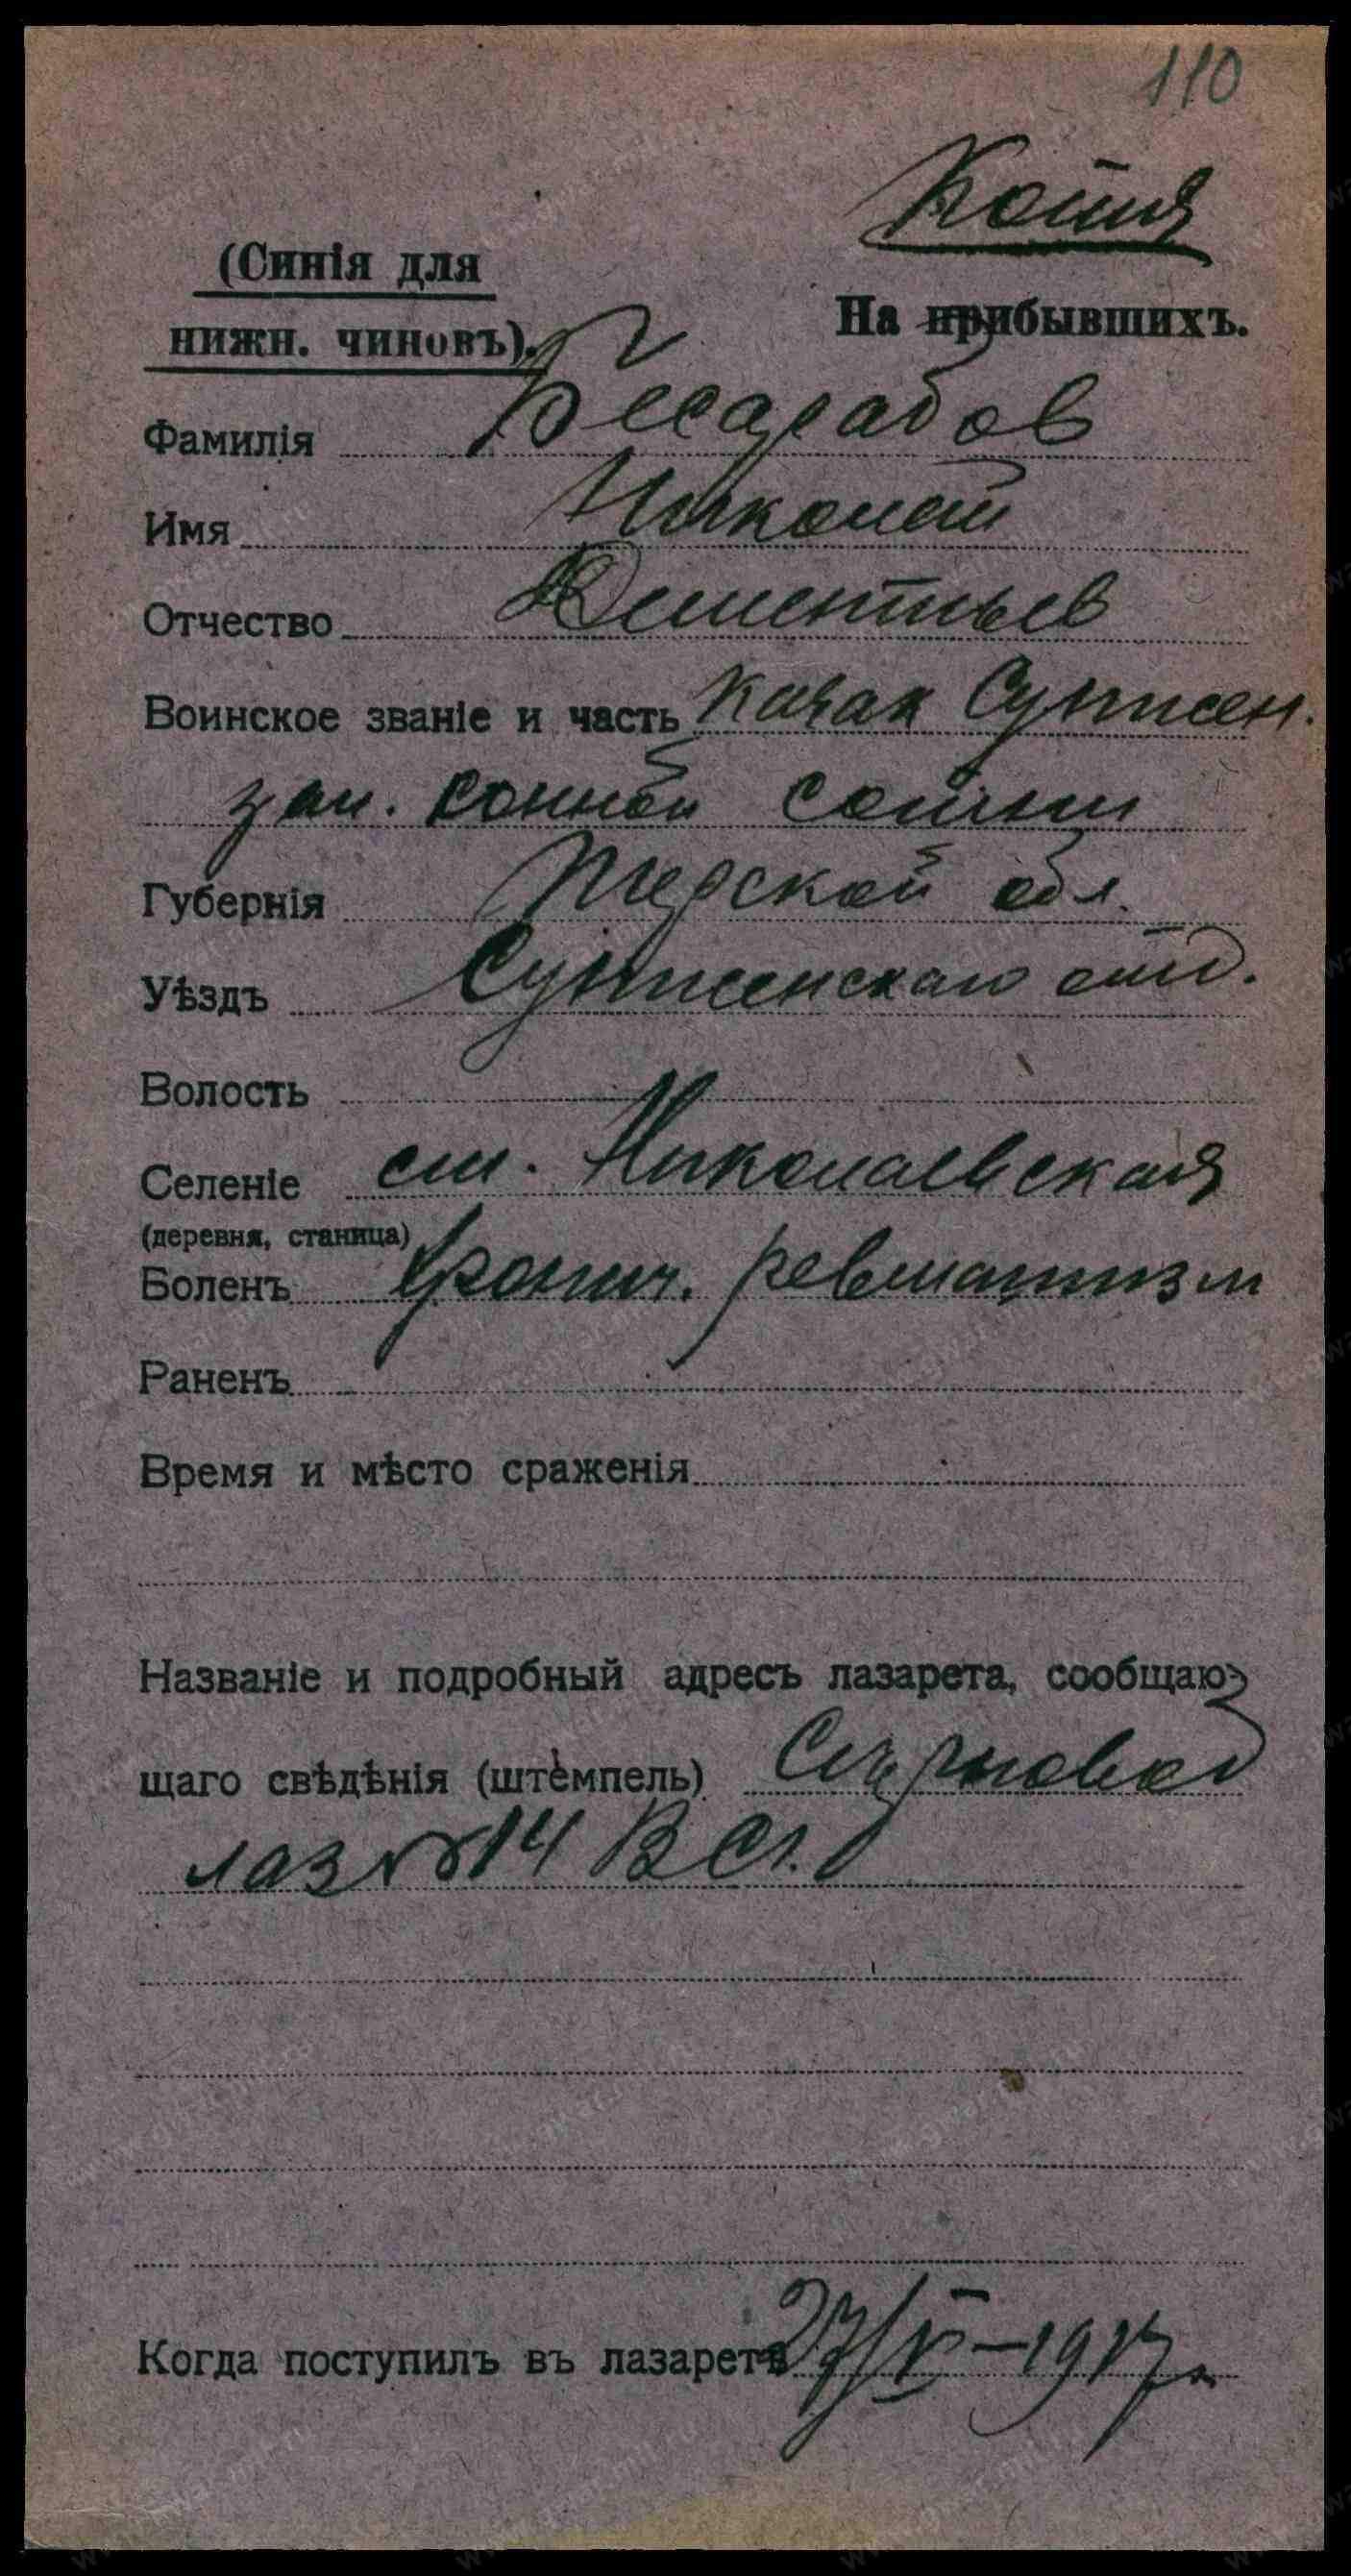 110
Копия
(Синія для
нижн. чиновъ).
На прибывшихъ.
Фамилія Бесарабов
Имя Николай
Отчество Дементьев
Воинское званіе и часть Казак Сунжен.
зап. конной сотни
Губернія Терской обл.
Уѣздъ Сунженскаго отд.
Волость
Селеніе ст. Николаевская
(деревня, станица)
Боленъ Хронич. ревматизм
Раненъ
Время и мѣсто сраженія
Названіе и подробный адресъ лазарета, сообщаю-
щаго свѣдѣнія (штемпель) Серновод
лаз №14 В С.
Когда поступилъ въ лазаретъ 27/V-1917 г.